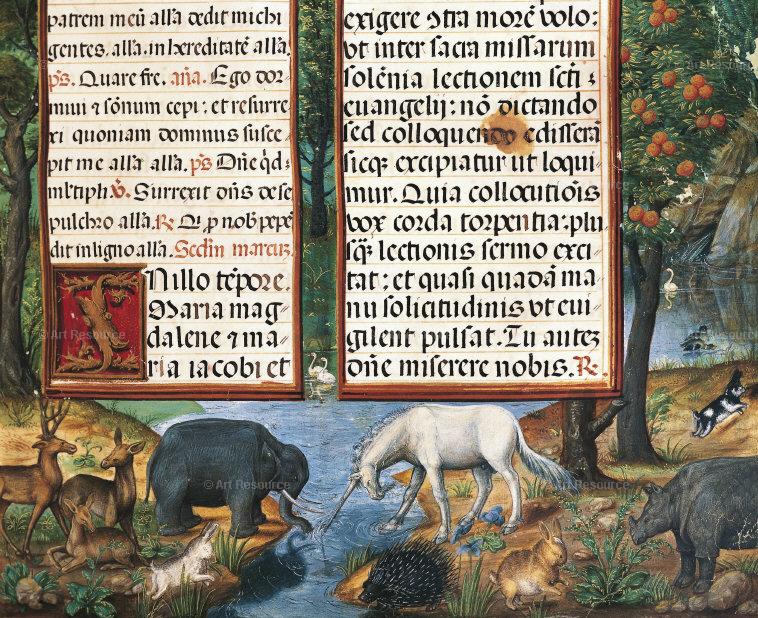 patrem meū alla dedit michi
gentes. alla. in hereditatē alla.
ps. Quare fre. aña. Ego dor-
mui ⁊ sōnum cepi: et resurre
xi quoniam dominus susce-
pit me alla alla. ps Dñe qd.
mltipli ꝟ. Surrexit dñs de se
pulchro alla. ℟. Qi p nob pepē
dit in ligno alla. Scdm marcū.
IN illo tēpore.
Maria mag-
dalene ⁊ ma-
ria iacobi et
exigere ↄtra morē volo:
vt inter sacra missarum
solēnia lectionem scti :
euangelij: nō dictando
sed colloquendo edisserā
sicq excipiatur ut loqui-
mur. Quia collocutiōis
vox corda torpentia: plu
sq lectionis sermo exci
tat: et quasi quadā ma
nu solicitudinis vt eui-
gilent pulsat. Tu autez
dñe miserere nobis. ℟.
© Art Resource
© Art Resource
© Art Resource
© Art Resource
© Art Resource
© Art Resource